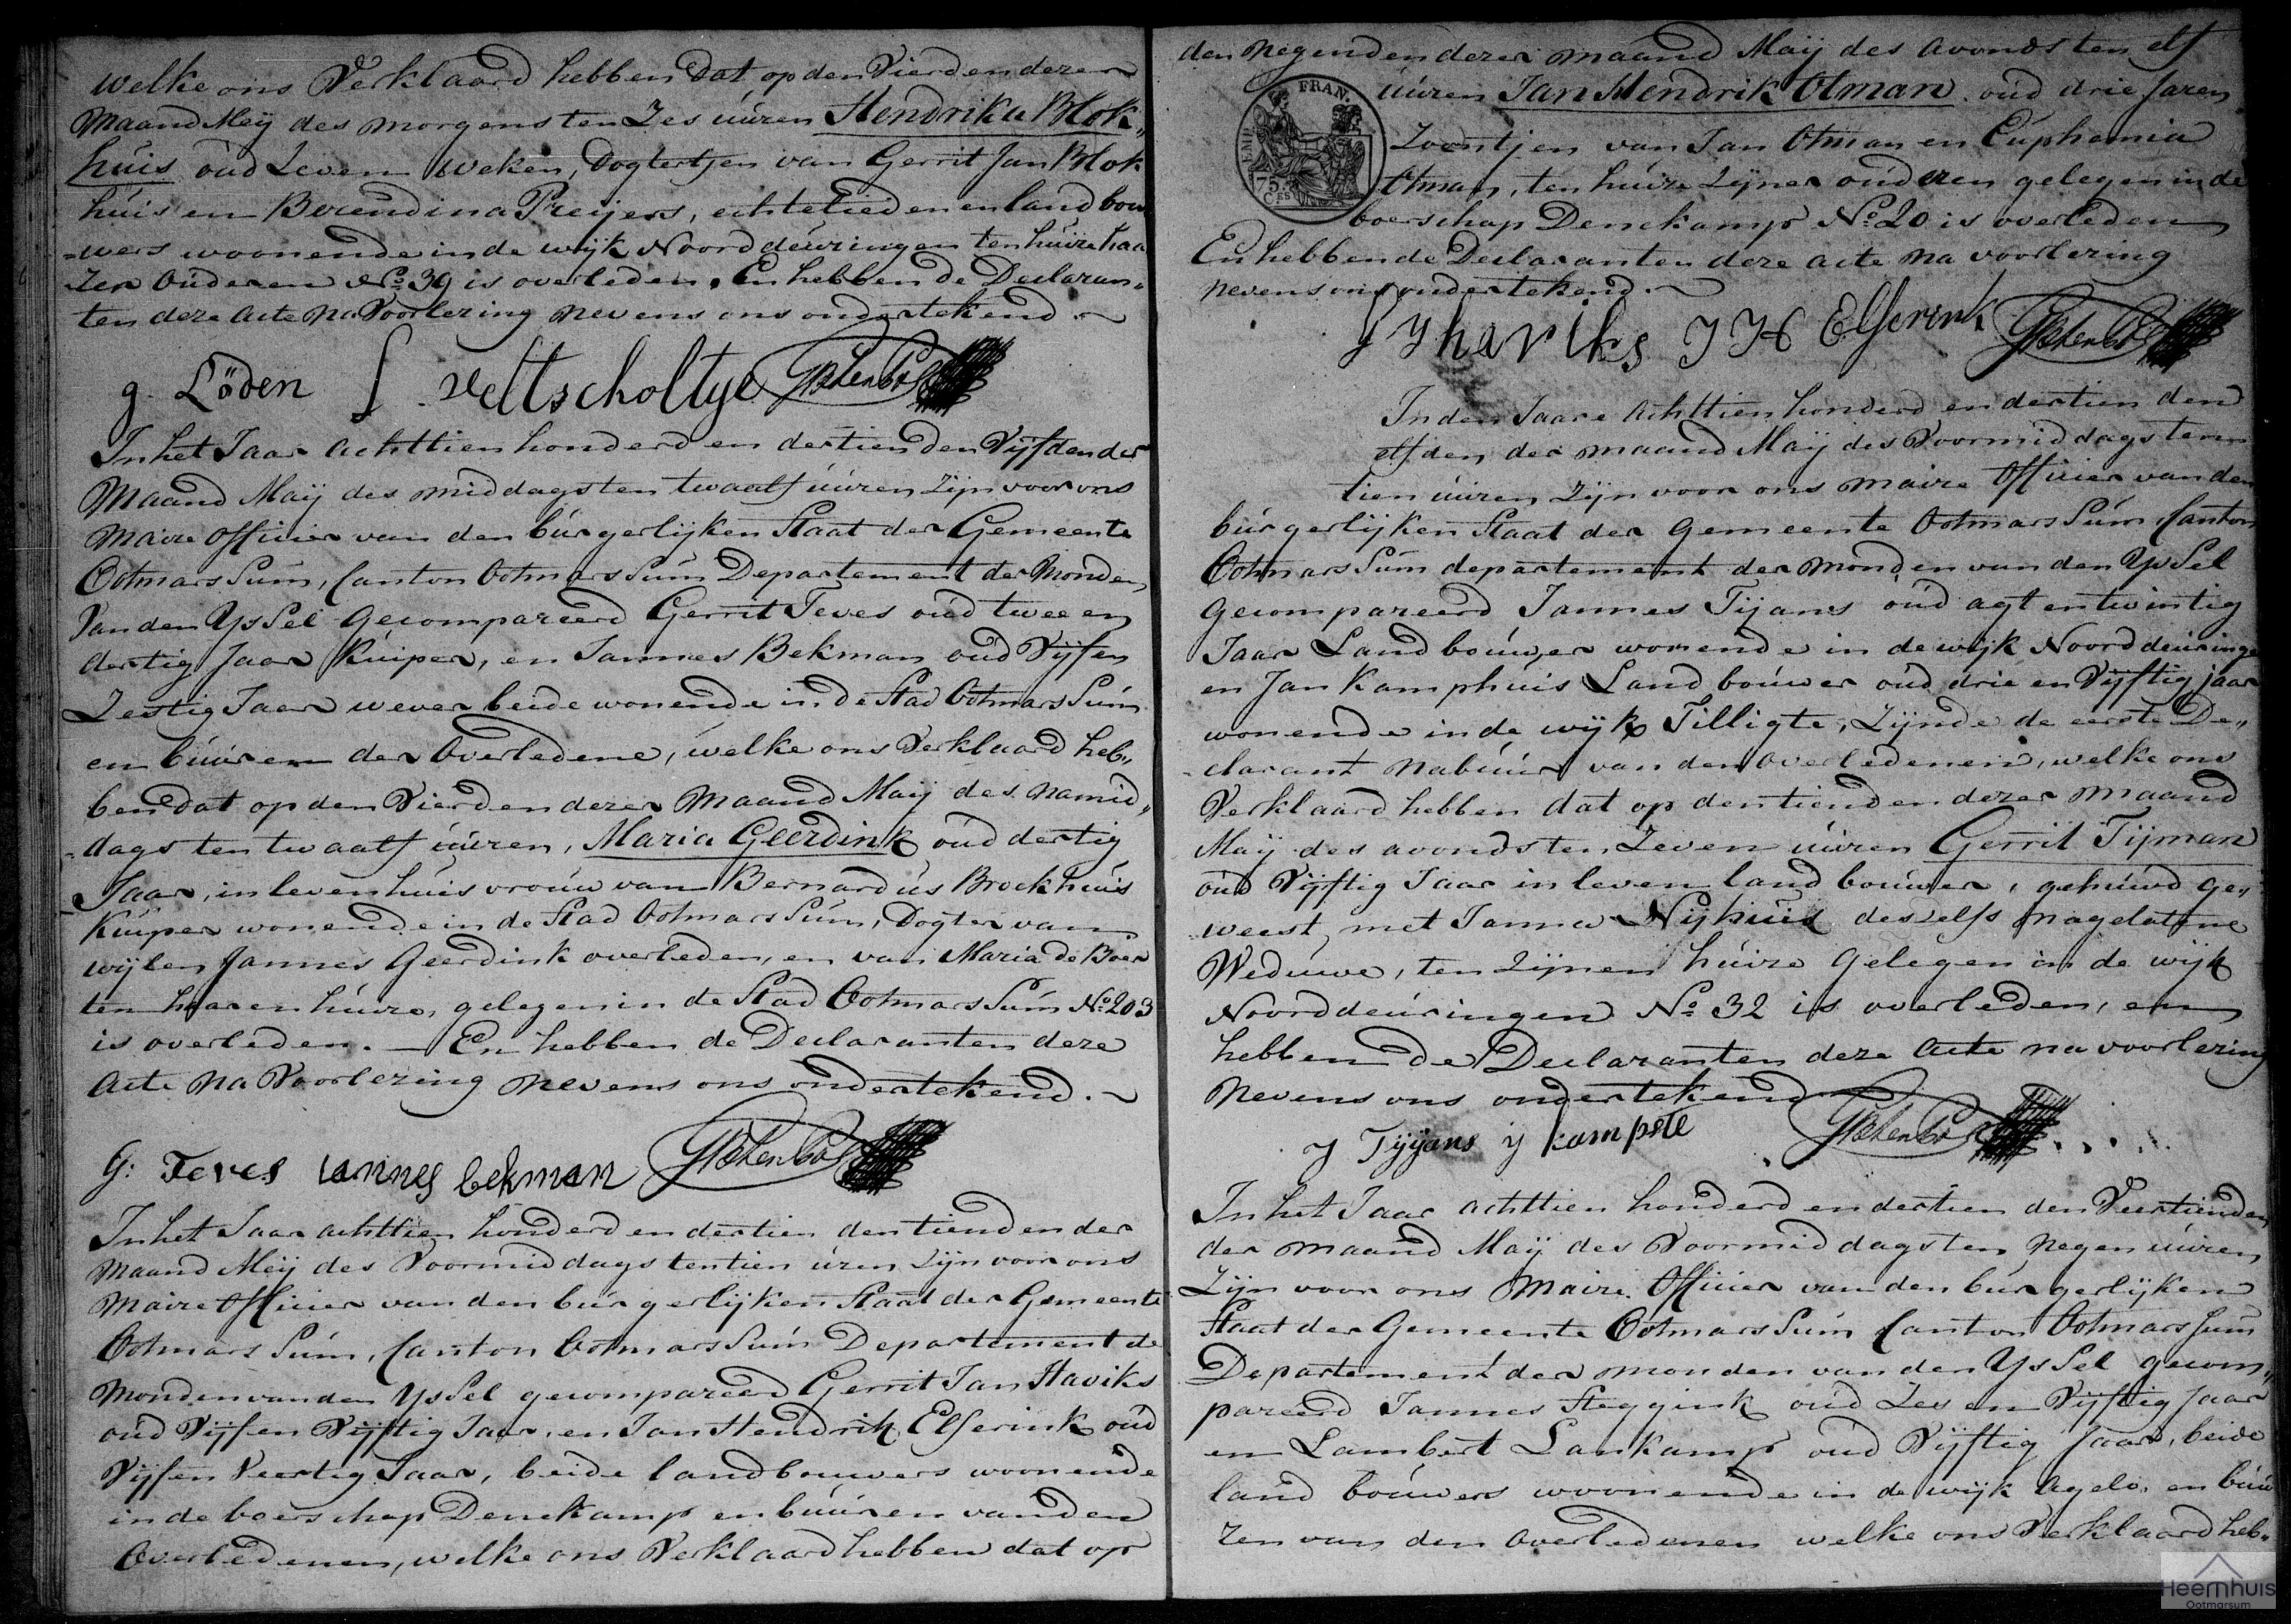 welke ons Verklaard hebben dat op den Vierden dezer
Maand Meij des morgens ten Zes úúren Hendrika Blok„
húis oúd Zeven weken, Dogtertjen van Gerrit Jan Blok
húis en Berendina Preijers, echtelieden en landbou
-wers woonende in de wijk Noorddeúringen ten húize haa
-rer oúderen No 39 is overleden. En hebben de Declaran„
ten deze acte na Voorlezing nevens ons ondertekend.
g. Löden J Veltscholtye
In het Jaar achttien honderd en dertien den Vijfden der
Maand Maij des middags ten twaalf úúren zijn voor ons
Maire officier van den búrgerlijken Staat der Gemeente
Ootmarssúm, Canton Ootmarssúm Departement der Monden
Van den Yssel Gecompareerd Gerrit Teves oúd twee en
dertig Jaar Kúiper, en Jannes Bekman oúd Vijf en
Zestig Jaar wever beide wonende in de Stad Ootmarssúm
en búúren der Overledene, welke ons Verklaard heb„
ben dat op den Vierden dezer Maand Maij des namid„
-dags ten twaalf úúren, Maria Geerdink oúd dertig
Jaar, in leven húisvroúw van Bernardús Brockhúis
Kúiper wonende in de Stad Ootmarssúm, Dogter van
wijlen Jannes Geerdink overleden, en van Maria de Boer
ten haaren húize, gelegen in de Stad Ootmarssúm No 203
is overleden. — En hebben de Declaranten deze
acte na Voorlezing nevens ons ondertekend.
G: Teves Jannes bekman
In het Jaar achttien honderd en dertien den tienden der
Maand Meij des Voormiddags ten tien úren zijn voor ons
Maire Officier van den búrgerlijken Staat der Gemeente
Ootmarssúm, Canton Ootmarssúm Departement de
Monden van den Yssel gecompareerd Gerrit Jan Haviks
oúd Vijf en Vijftig Jaar, en Jan Hendrik Elferink oúd
Vijf en Veertig Jaar, beide landbouwers woonende
in de boerschap Denekamp en búúren van den
Overledenen, welke ons Verklaard hebben dat op
den negenden dezer maand Maij des avonds ten elf
úúren Jan Hendrik Otman oúd drie Jaren
Zoontjen van Jan Otman en Eúphemia
Otman, ten húize zijner oúderen gelegen in de
boerschap Denekamp No 20 is overleden
En hebben de Declaranten deze acte na voorlezing
nevens ons ondertekend.
FRAN.
EMP.
75
CES
J H Elferink
In den Jaare achttien honderd en dertien den
elfden der maand Maij des Voormiddags ten
tien úúren zijn voor ons maire Officier van den
búrgerlijken Staat der gemeente Ootmarssúm Canton
Ootmarssúm departement der monden van den Yssel
Gecompareerd Jannes Tijans oúd agt en twintig
Jaar Landboúwer wonende in de wijk Noorddeúringe
en Jan Kamphuis Landboúwer oúd drie en Vijftig jaar
wonende in de wijk Tilligte, zijnde de eerste De„
-clarant nabúúr van den overledenen, welke ons
Verklaard hebben dat op den tienden dezer maand
Maij des avonds ten Zeven úúren Gerrit Tijman
oúd Vijftig Jaar in leven landboúwer, gehúúwd ge„
weest met Janna Nijhúis deszelfs nagelatene
Wedúwe, ten zijnen húize gelegen in de wijk
Noorddeúringen No 32 is overleden, en
hebben de Declaranten deze acte na voorlezing
nevens ons ondertekend
J Tijans
In het Jaar achttien honderd en dertien den Veertienden
der maand Maij des Voormiddags ten negen úúren
zijn voor ons Maire Officier van den búrgerlijken
Staat der Gemeente Ootmarssúm Canton Ootmarssúm
Departement der monden van den Yssel gecom„
pareerd Jannes Steggink oúd Zes en Vijftig Jaar
en Lambert Lankamp oúd Vijftig Jaar, beide
landboúwers woonende in de wijk Agelo, en búú
ren van den overledenen welke ons Verklaard heb„
Heemhuis
Ootmarsum